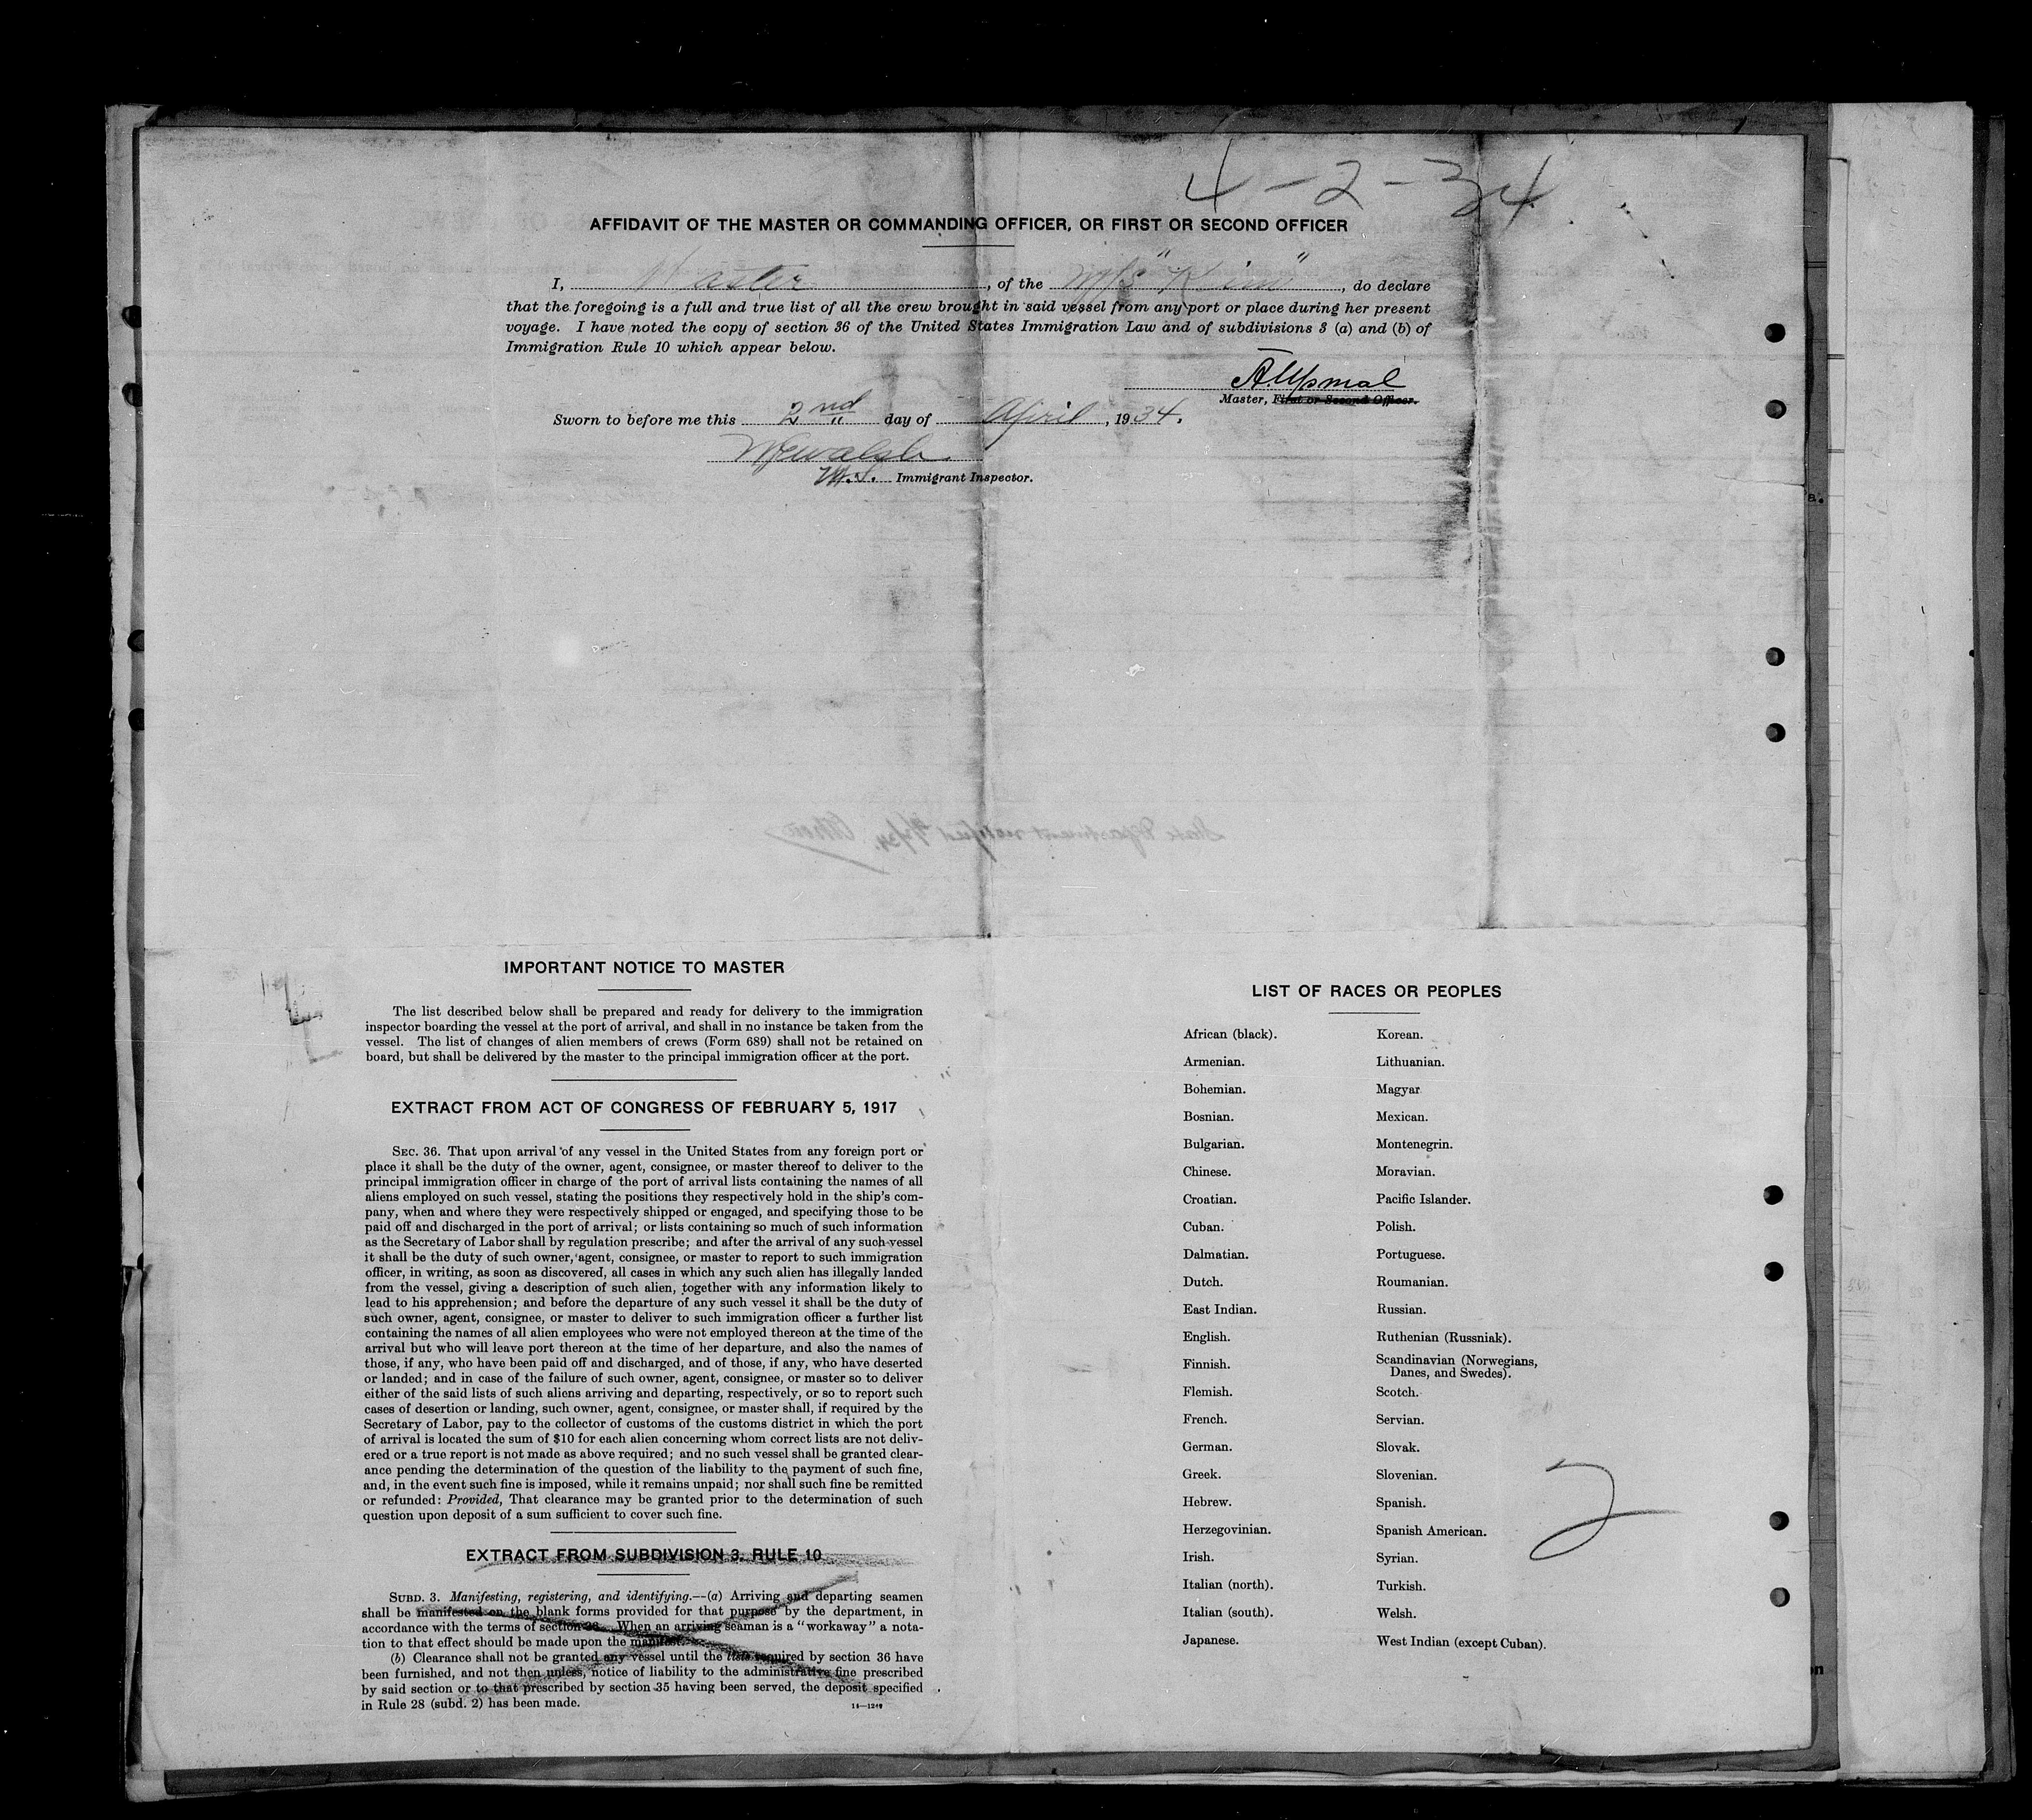 4-2-34
AFFIDAVIT OF THE MASTER OR COMMANDING OFFICER, OR FIRST OR SECOND OFFICER
I, Master, of the M/S "Kim", do declare
that the foregoing is a full and true list of all the crew brought in said vessel from any port or place during her present
voyage. I have noted the copy of section 36 of the United States Immigration Law and of subdivisions 3 (a) and (b) of
Immigration Rule 10 which appear below.
Master, First or Second Officer.
Sworn to before me this 2nd day of April, 1934.
Immigrant Inspector.
IMPORTANT NOTICE TO MASTER
The list described below shall be prepared and ready for delivery to the immigration
inspector boarding the vessel at the port of arrival, and shall in no instance be taken from the
vessel. The list of changes of alien members of crews (Form 689) shall not be retained on
board, but shall be delivered by the master to the principal immigration officer at the port.
EXTRACT FROM ACT OF CONGRESS OF FEBRUARY 5, 1917
SEC. 36. That upon arrival of any vessel in the United States from any foreign port or
place it shall be the duty of the owner, agent, consignee, or master thereof to deliver to the
principal immigration officer in charge of the port of arrival lists containing the names of all
aliens employed on such vessel, stating the positions they respectively hold in the ship's com-
pany, when and where they were respectively shipped or engaged, and specifying those to be
paid off and discharged in the port of arrival; or lists containing so much of such information
as the Secretary of Labor shall by regulation prescribe; and after the arrival of any such vessel
it shall be the duty of such owner, agent, consignee, or master to report to such immigration
officer, in writing, as soon as discovered, all cases in which any such alien has illegally landed
from the vessel, giving a description of such alien, together with any information likely to
lead to his apprehension; and before the departure of any such vessel it shall be the duty of
such owner, agent, consignee, or master to deliver to such immigration officer a further list
containing the names of all alien employees who were not employed thereon at the time of the
arrival but who will leave port thereon at the time of her departure, and also the names of
those, if any, who have been paid off and discharged, and of those, if any, who have deserted
or landed; and in case of the failure of such owner, agent, consignee, or master so to deliver
either of the said lists of such aliens arriving and departing, respectively, or so to report such
cases of desertion or landing, such owner, agent, consignee, or master shall, if required by the
Secretary of Labor, pay to the collector of customs of the customs district in which the port
of arrival is located the sum of $10 for each alien concerning whom correct lists are not deliv-
ered or a true report is not made as above required; and no such vessel shall be granted clear-
ance pending the determination of the question of the liability to the payment of such fine,
and, in the event such fine is imposed, while it remains unpaid; nor shall such fine be remitted
or refunded: Provided, That clearance may be granted prior to the determination of such
question upon deposit of a sum sufficient to cover such fine.
EXTRACT FROM SUBDIVISION 3, RULE 10
SUBD. 3. Manifesting, registering, and identifying.—(a) Arriving and departing seamen
shall be manifested on the blank forms provided for that purpose by the department, in
accordance with the terms of section 36. When an arriving seaman is a "workaway" a nota-
tion to that effect should be made upon the manifest.
(b) Clearance shall not be granted any vessel until the lists required by section 36 have
been furnished, and not then unless, notice of liability to the administrative fine prescribed
by said section or to that prescribed by section 35 having been served, the deposit specified
in Rule 28 (subd. 2) has been made.
14—1240
LIST OF RACES OR PEOPLES
African (black). Korean.
Armenian. Lithuanian.
Bohemian. Magyar
Bosnian. Mexican.
Bulgarian. Montenegrin.
Chinese. Moravian.
Croatian. Pacific Islander.
Cuban. Polish.
Dalmatian. Portuguese.
Dutch. Roumanian.
East Indian. Russian.
English. Ruthenian (Russniak).
Finnish. Scandinavian (Norwegians,
Danes, and Swedes).
Flemish. Scotch.
French. Servian.
German. Slovak.
Greek. Slovenian.
Hebrew. Spanish.
Herzegovinian. Spanish American.
Irish. Syrian.
Italian (north). Turkish.
Italian (south). Welsh.
Japanese. West Indian (except Cuban).
2